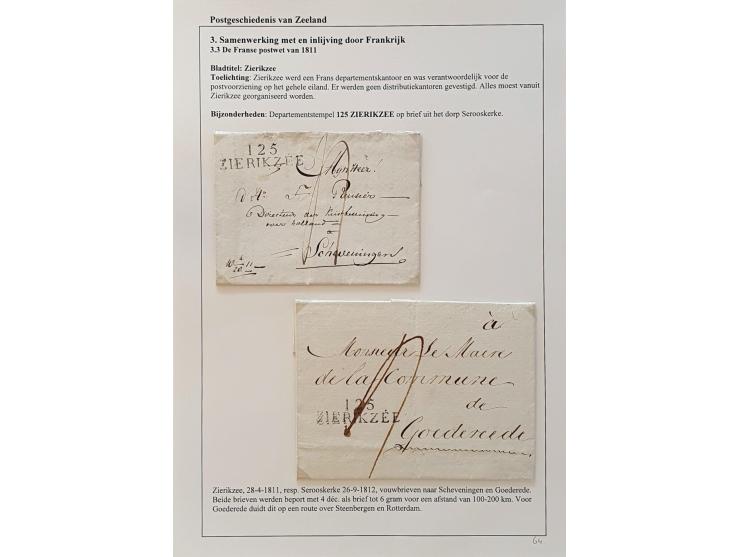 Postgeschiedenis van Zeeland
3. Samenwerking met en inlijving door Frankrijk
3.3 De Franse postwet van 1811
Bladtitel: Zierikzee
Toelichting: Zierikzee werd een Frans departementskantoor en was verantwoordelijk voor de
postvoorziening op het gehele eiland. Er werden geen distributiekantoren gevestigd. Alles moest vanuit
Zierikzee georganiseerd worden.
Bijzonderheden: Departementstempel 125 ZIERIKZEE op brief uit het dorp Serooskerke.
125
ZIERIKZÉE
Mijnheer!
Directeur der
over holland
a
Scheveningen
à
Monsieur Le Maire
de la Commune
de
125
ZIERIKZÉE
Goedereede
Zierikzee, 28-4-1811, resp. Serooskerke 26-9-1812, vouwbrieven naar Scheveningen en Goederede.
Beide brieven werden beport met 4 déc. als brief tot 6 gram voor een afstand van 100-200 km. Voor
Goederede duidt dit op een route over Steenbergen en Rotterdam.
64